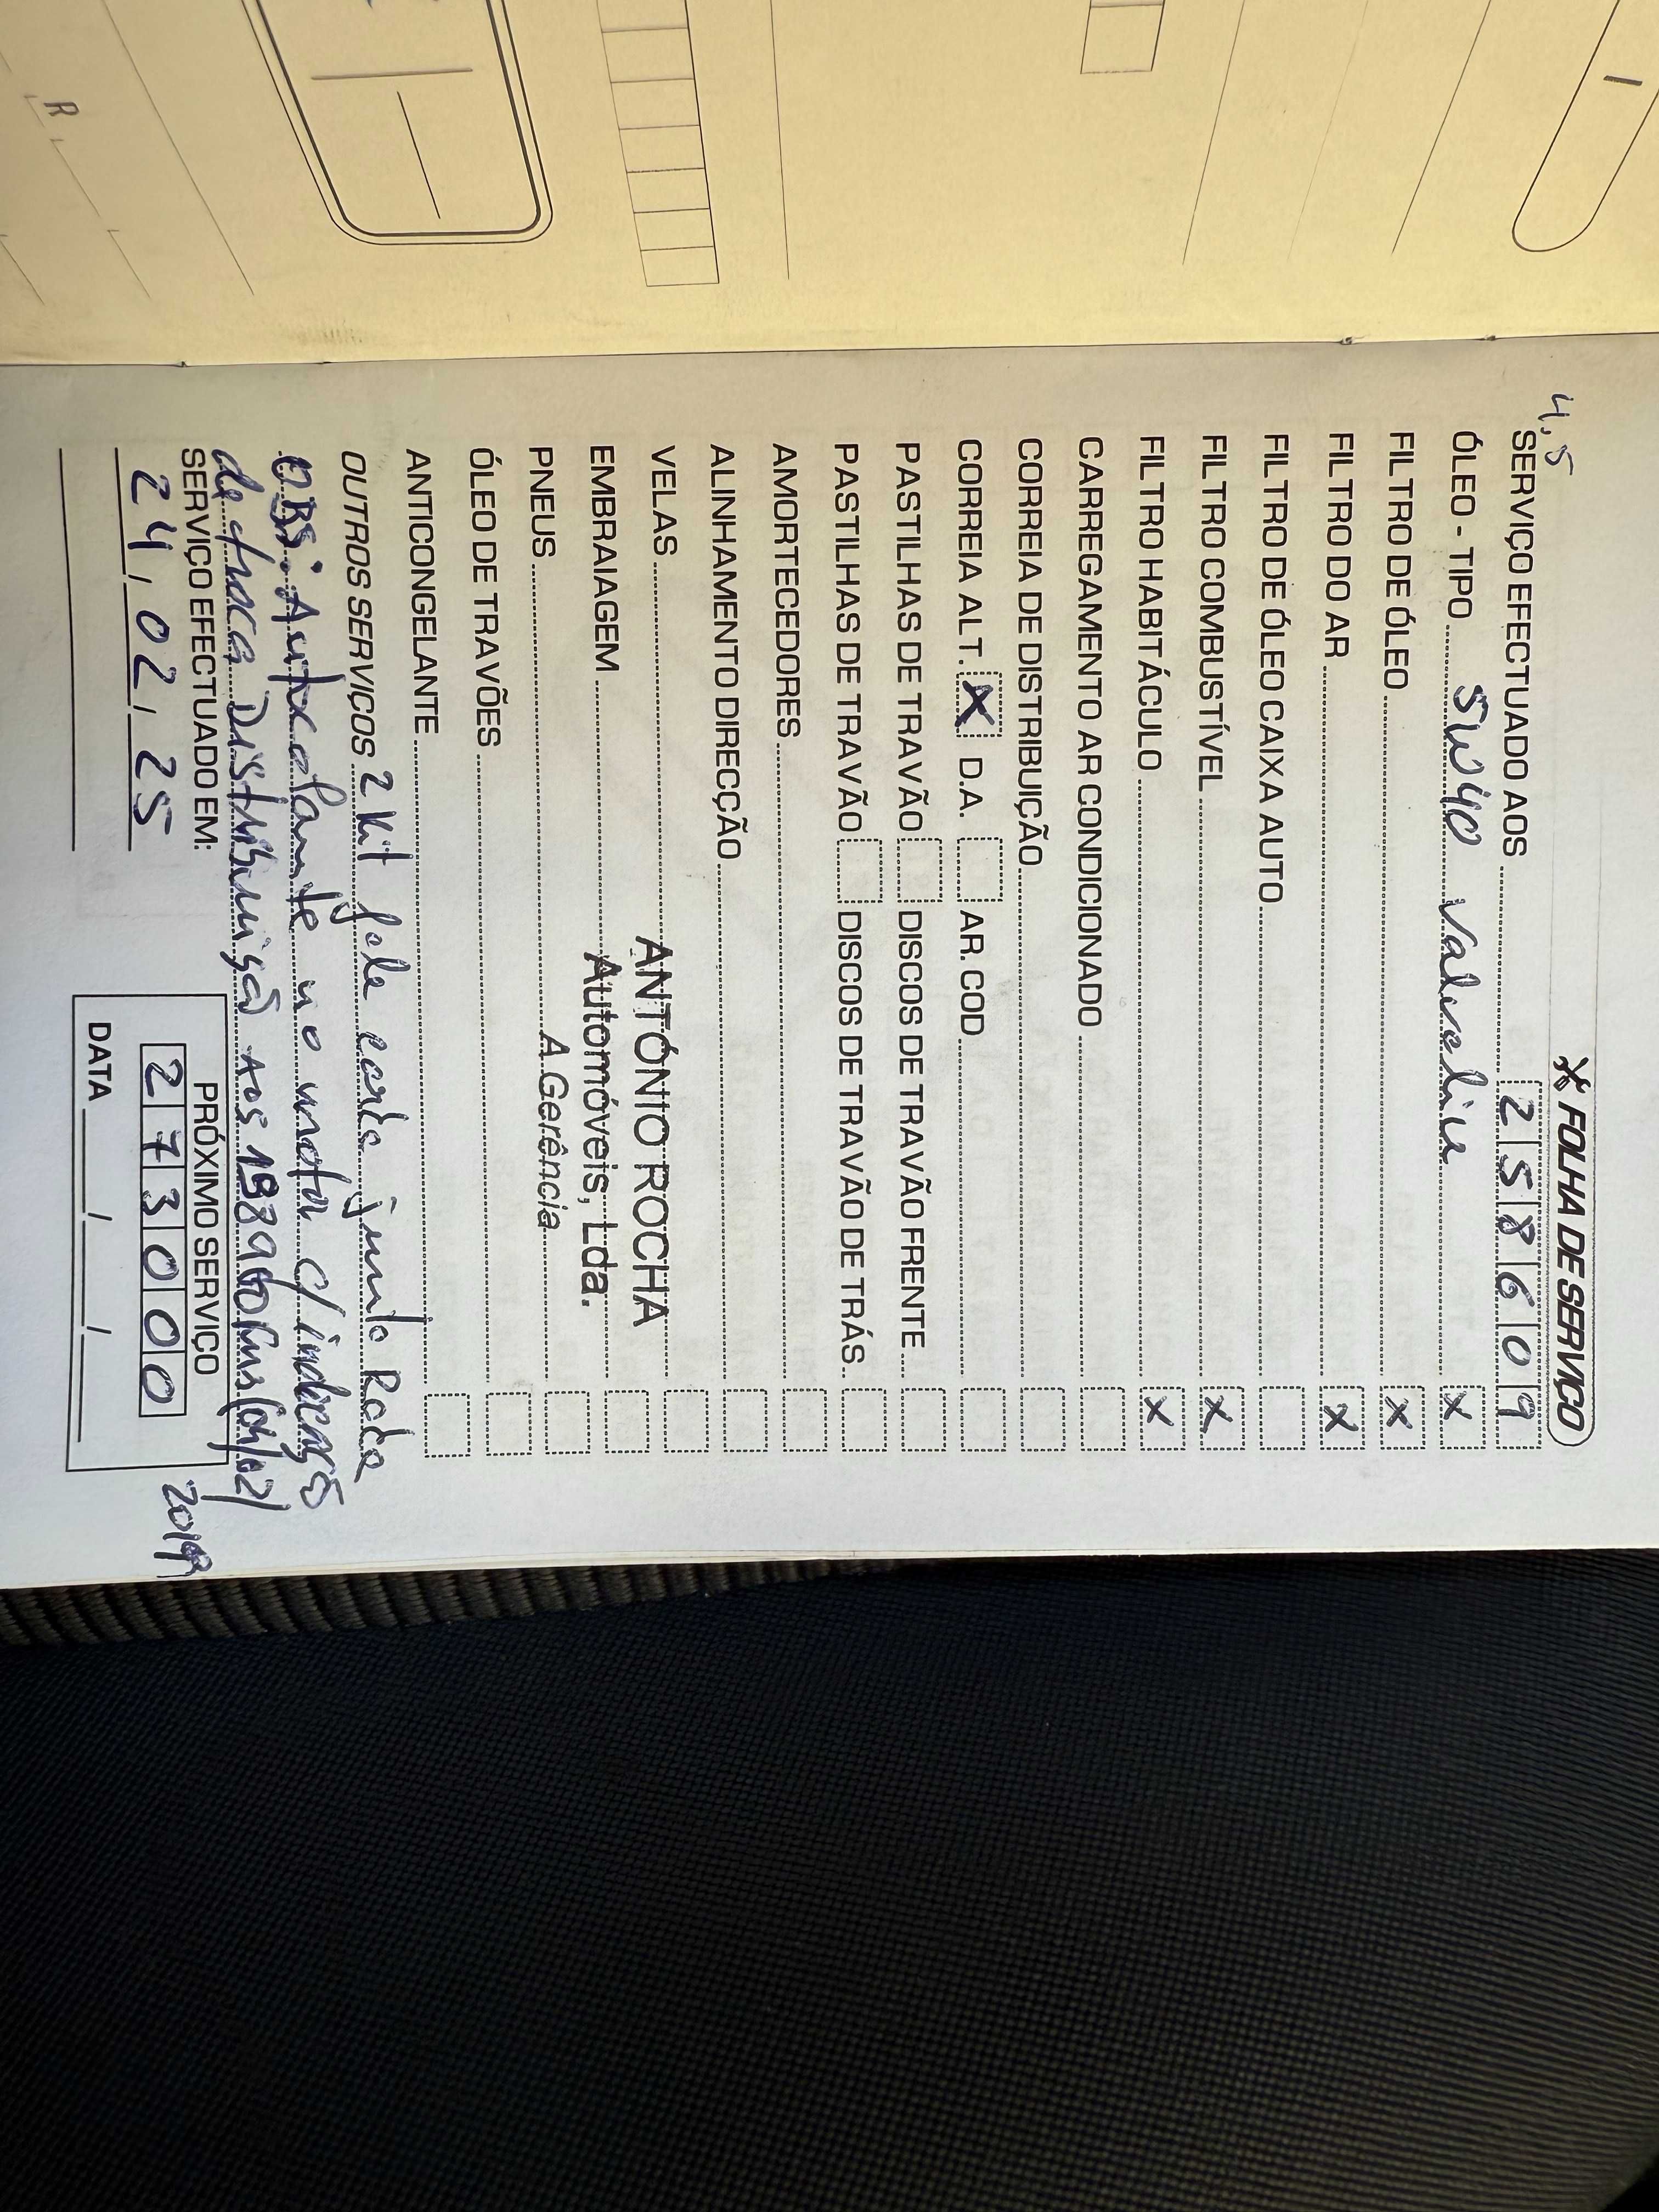 FOLHA DE SERVIÇO
4,5
SERVIÇO EFECTUADO AOS 258609
ÓLEO - TIPO 5W40 Valvoline X
FILTRO DE ÓLEO X
FILTRO DO AR X
FILTRO DE ÓLEO CAIXA AUTO
FILTRO COMBUSTÍVEL X
FILTRO HABITÁCULO X
CARREGAMENTO AR CONDICIONADO
CORREIA DE DISTRIBUIÇÃO
CORREIA ALT. X D.A. AR. COD
PASTILHAS DE TRAVÃO DISCOS DE TRAVÃO FRENTE
PASTILHAS DE TRAVÃO DISCOS DE TRAVÃO DE TRÁS
AMORTECEDORES
ALINHAMENTO DIRECÇÃO
VELAS
ANTÓNIO ROCHA
EMBRAIAGEM
Automóveis, Lda.
PNEUS
A Gerência
ÓLEO DE TRAVÕES
ANTICONGELANTE
OUTROS SERVIÇOS 2 Kit fole cardã junto Roda
OBS: Autocolante no motor c/ indicação
de troca Distribuiçã aos 189
2019
SERVIÇO EFECTUADO EM:
24, 02, 25
PRÓXIMO SERVIÇO
273000
DATA / /
R